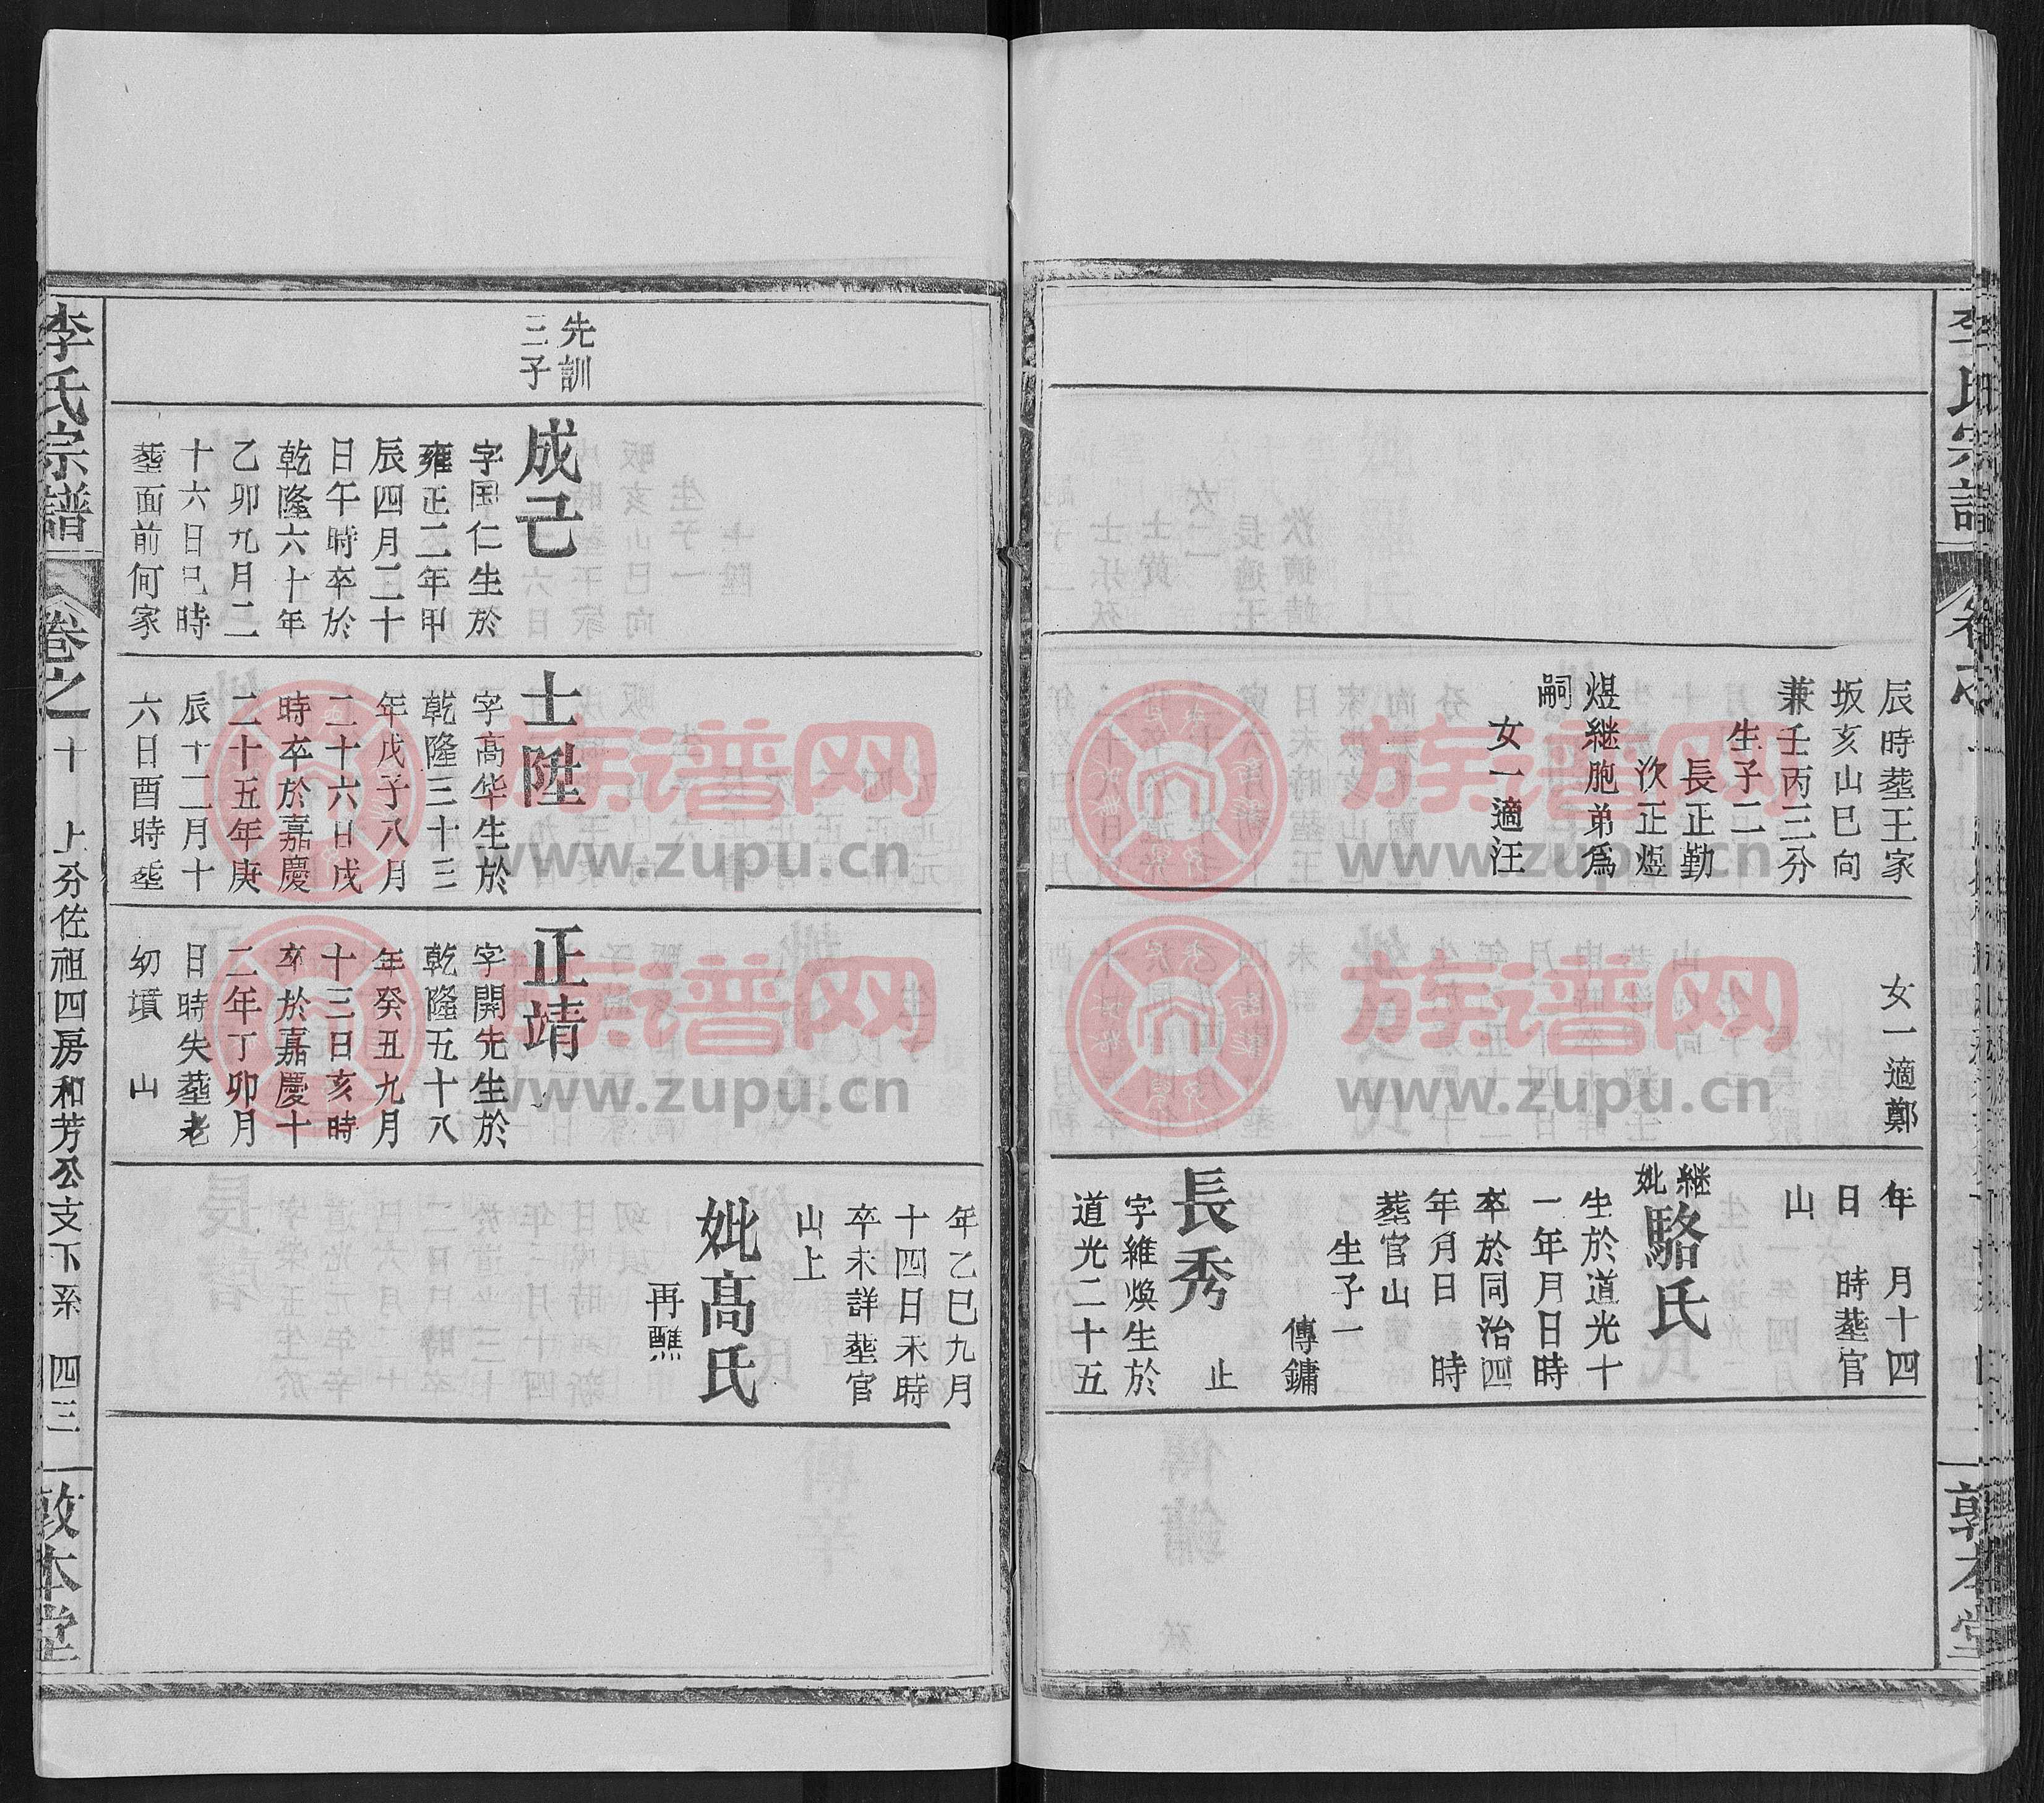 辰時塟王家
坂亥山巳向
兼壬丙三分
生子二
長正勤
次正煜
煜継胞弟爲
嗣
女一適汪
女一適鄭
年 月十四
日 時塟官
山
継
妣
駱氏
生於道光十
一年月日時
卒於同治四
年月日 時
塟官山
生子一
傳鏞
長秀 止
字維煥生於
道光二十五
年乙巳九月
十四日未時
卒未詳塟官
山上
妣高氏
再醮
先訓
三子
成己
字国仁生於
雍正二年甲
辰四月二十
日午時卒於
乾隆六十年
乙卯九月二
十六日巳時
塟面前何家
士陞
字高华生於
乾隆三十三
年戊子八月
二十六日戌
時卒於嘉慶
二十五年庚
辰十二月十
六日酉時塟
正靖
字開先生於
乾隆五十八
年癸丑九月
十三日亥時
卒於嘉慶十
二年丁卯月
日時失塟老
幼墳 山
李氏宗譜
卷之十 上分佐祖四房和芳公支下系 四三
敦本堂
李氏宗譜
敦本堂
族谱网
www.zupu.cn
族谱网
www.zupu.cn
族谱网
www.zupu.cn
族谱网
www.zupu.cn